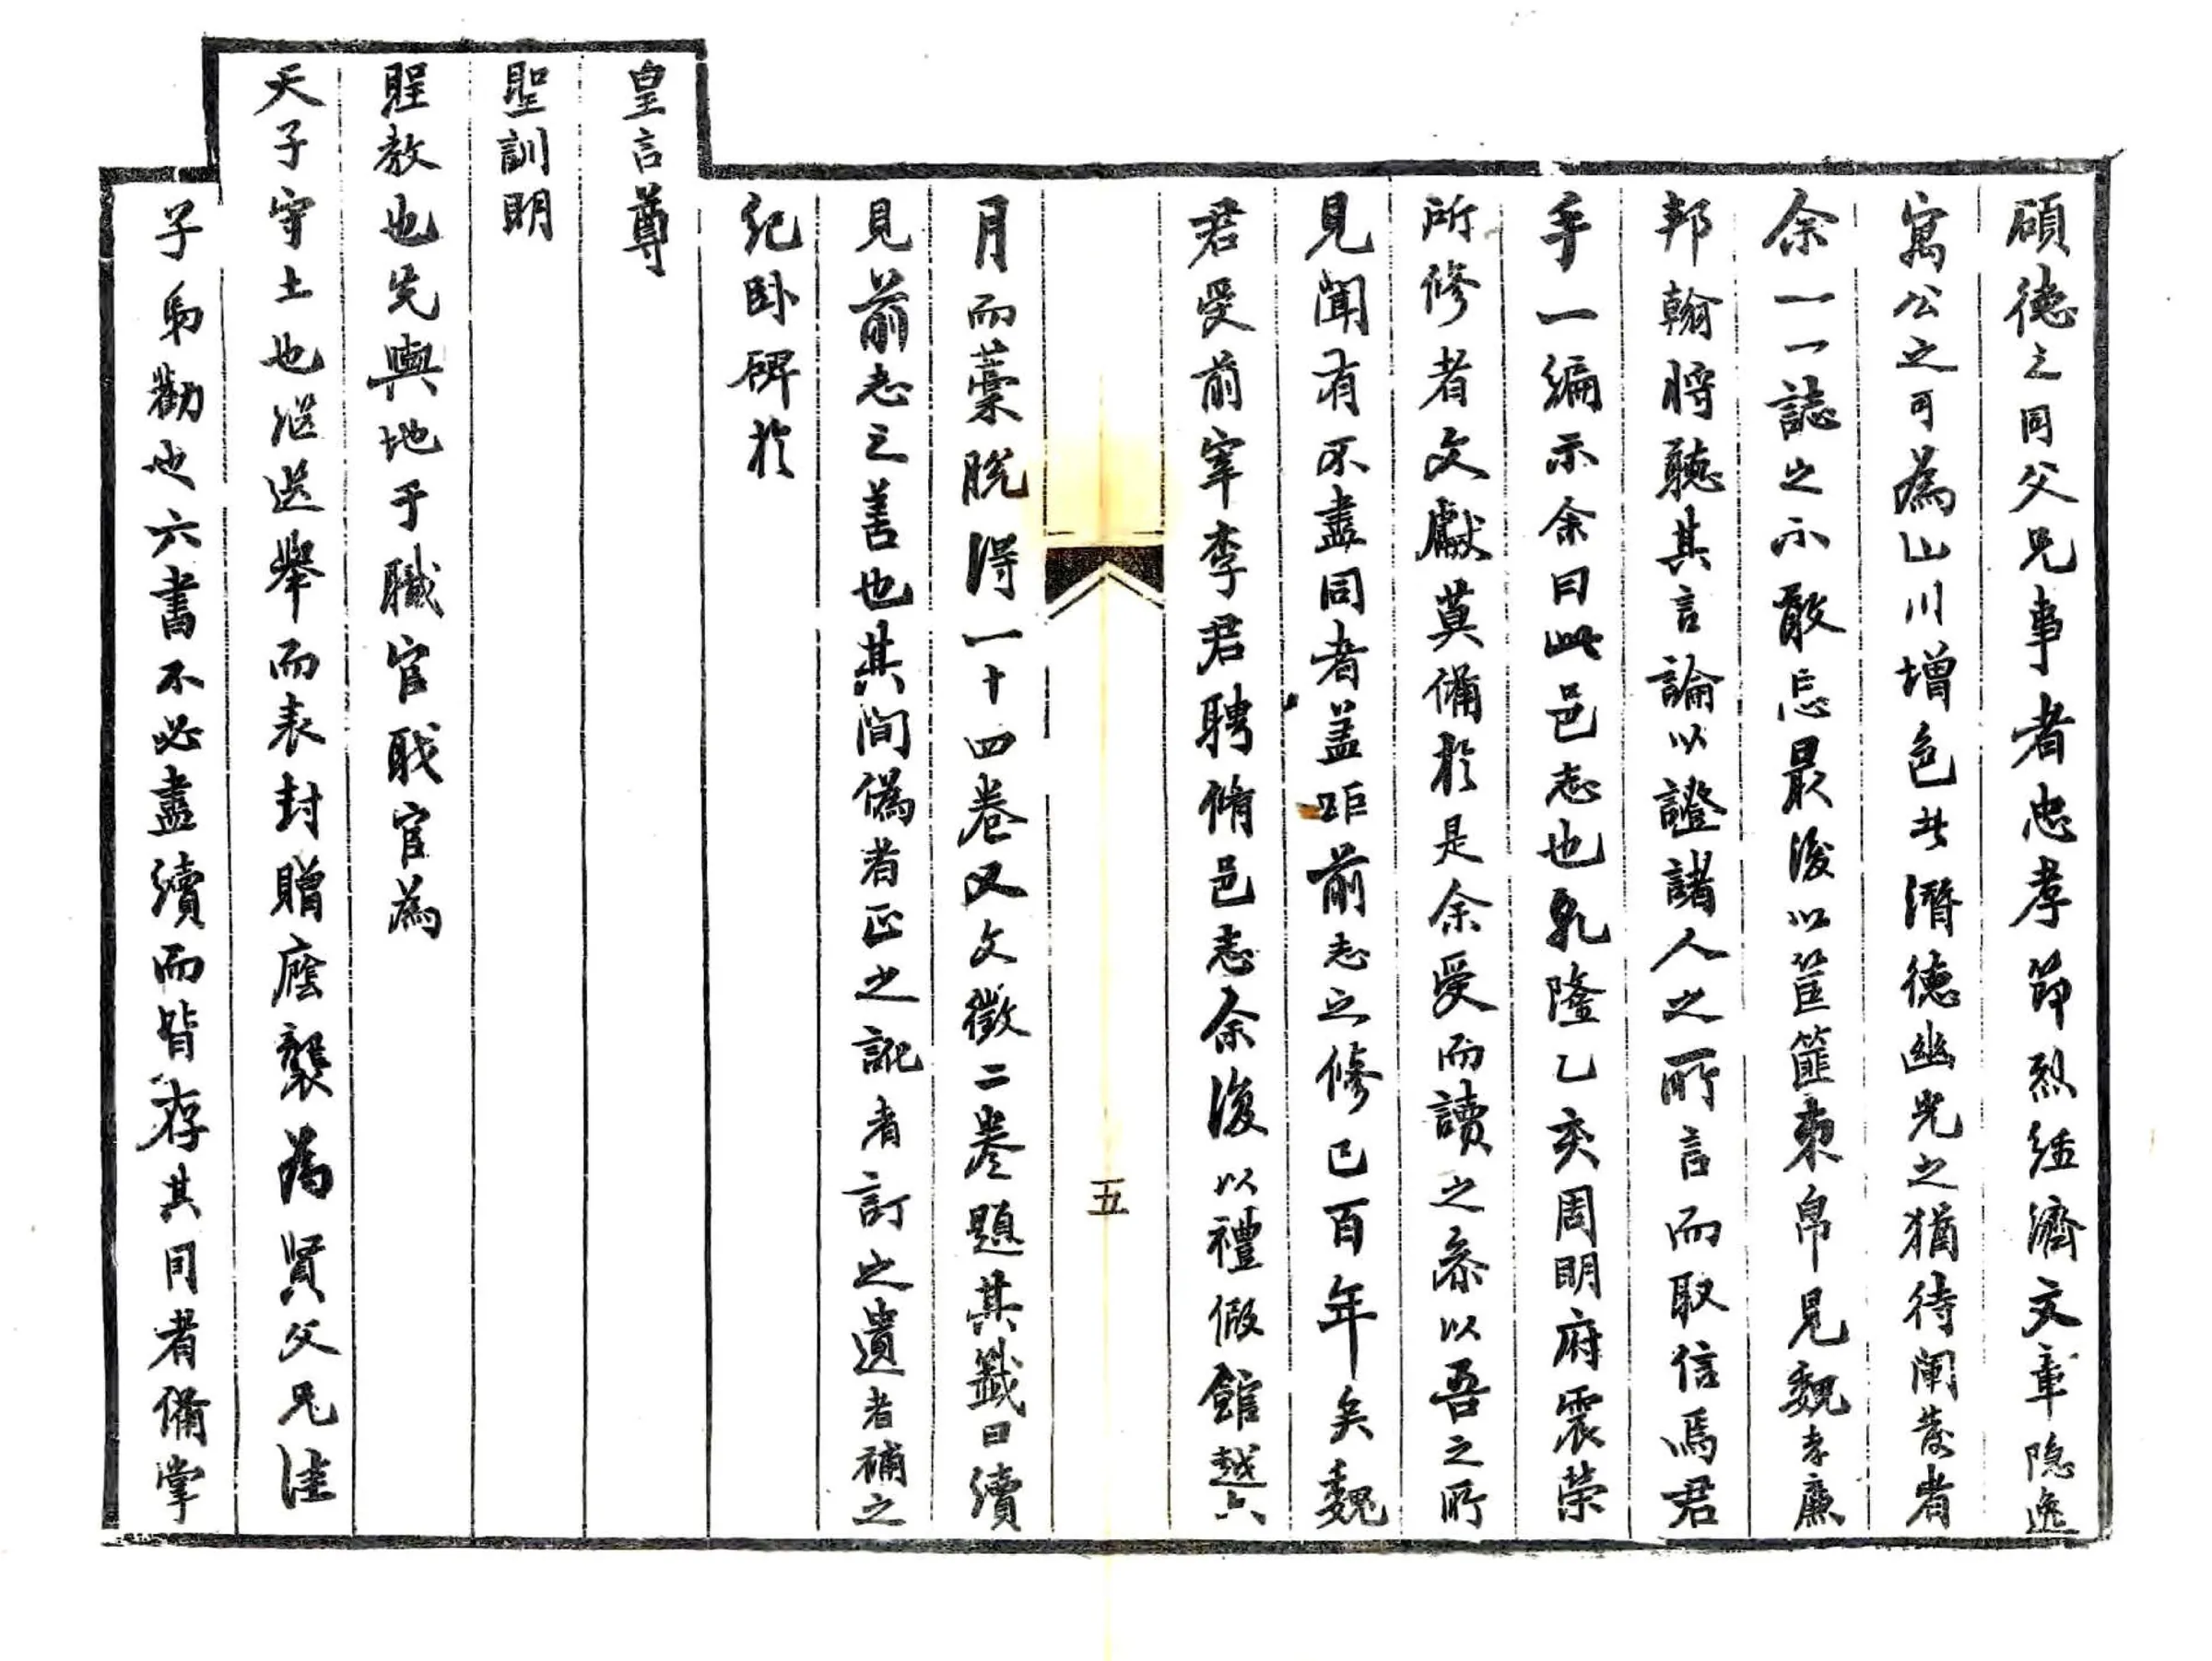 碩德之同父兄事者忠孝節烈經濟文章隐逸
寓公之可為山川增色其潛德幽光之猶待闡發者
余一一誌之不敢忘最後以筐篚束帛見魏孝廉
邦翰將聽其言論以證諸人之所言而取信焉君
手一編示余曰此邑志也乳隆乙亥周明府震榮
所修者文獻莫備於是余受而讀之叅以吾之所
見聞有不盡同者盖距前志之修已百年矣魏
君受前宰李君聘脩邑志余復以禮假館越六
五
月而藁脱得一十四卷又文徵二卷題其籤曰續
見前志之善也其間偽者正之訛者訂之遺者補之
紀卧碑於
皇言尊
聖訓明
聖教也先輿地于職官職官為
天子守土也選舉而表封贈廕襲為賢父兄
子弟勸也六書不必盡續而皆存其同者備掌